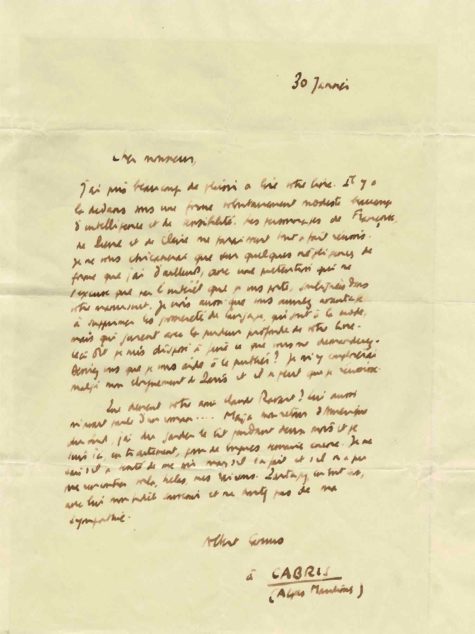 30 Janvier
Cher monsieur,
J'ai pris beaucoup de plaisir à lire votre livre. Il y a
là dedans sous une forme volontairement modeste beaucoup
d'intelligence et de sensibilité. Les personnages de Françoise,
de Pierre et de Claire me paraissent tout à fait réussis.
Je ne vous chicanerai que sur quelques négligences de
forme que j'ai d'ailleurs, avec une prétention qui ne
s'excuse que par l'intérêt que je vous porte, soulignées dans
votre manuscrit. Je crois aussi que vous auriez avantage
à supprimer les grossièretés de langage, qui sont à la mode,
mais qui jurent avec la pudeur profonde de votre livre.
Ceci dit je suis disposé à faire ce que vous me demanderez.
Désirez vous que je vous aide à le publier? Je m'y emploierai
malgré mon éloignement de Paris et il se peut que je réussisse.
Que devient votre ami Claude ? Lui aussi
m'avait parlé d'un roman.... Mais mon retour d'Amérique
du sud, j'ai dû garder le lit pendant deux mois et je
suis ici, en traitement, pour de longues semaines encore. Je ne
sais s'il a tenté de me voir mais s'il l'a fait et s'il n'a pu
me rencontrer voilà, hélas, mes raisons. en tout cas,
avec lui mon souvenir et ne doutez pas de ma
sympathie.
Albert Camus
à CABRIS
(Alpes Maritimes)